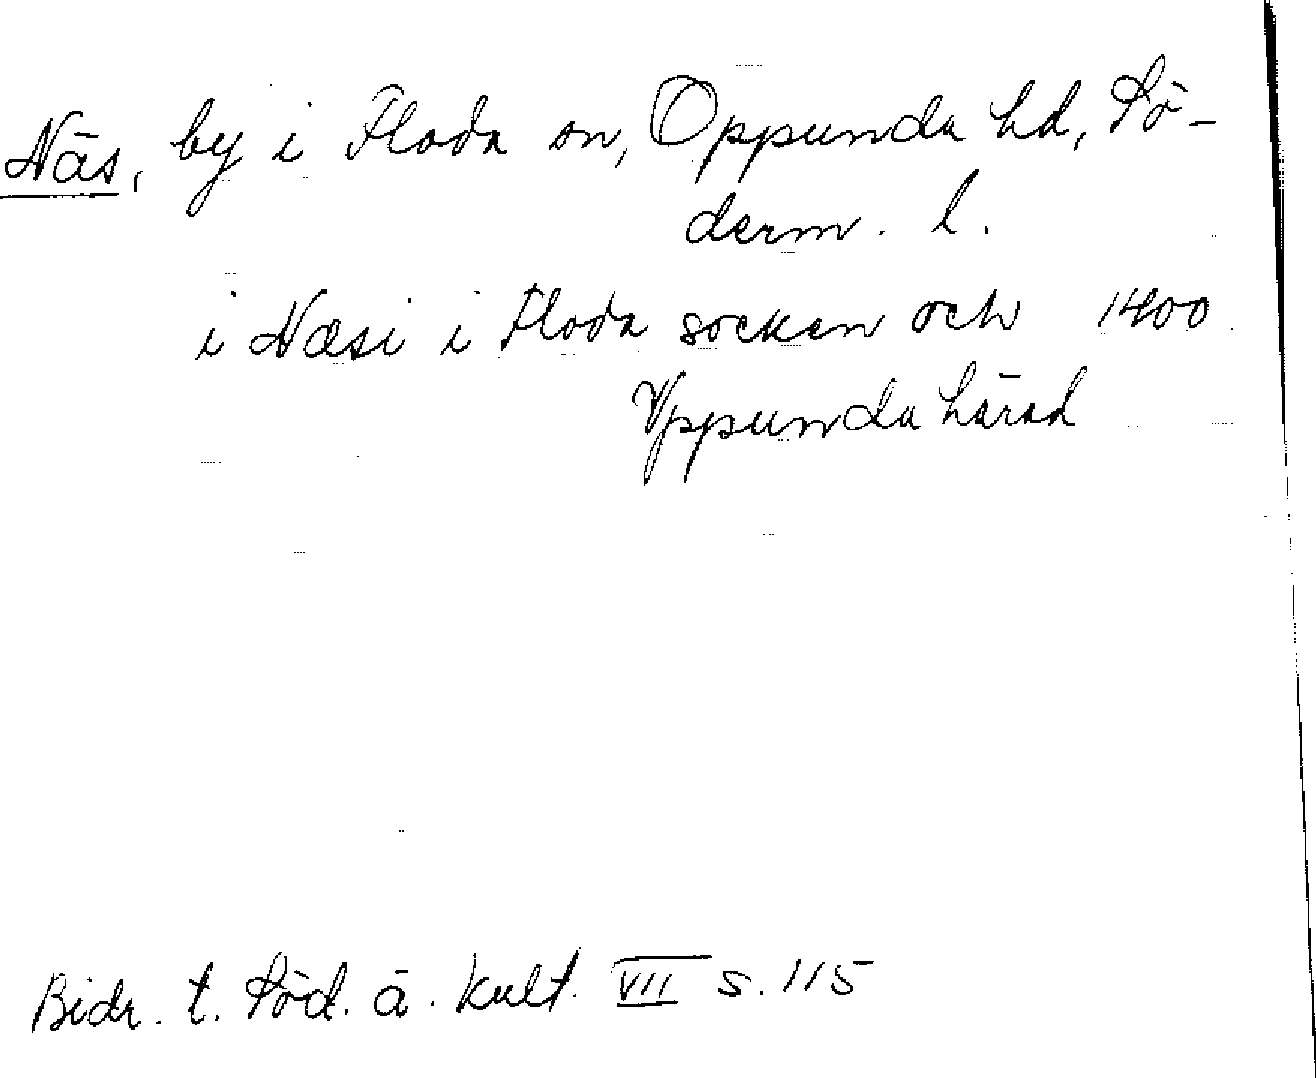 Näs, by i Floda sn, Oppunda hd, Sö-
derm. l.
i Næsi i Floda socken och 1400
Vppunda härad
Bidr. t. Söd. ä. kult. VII s. 115